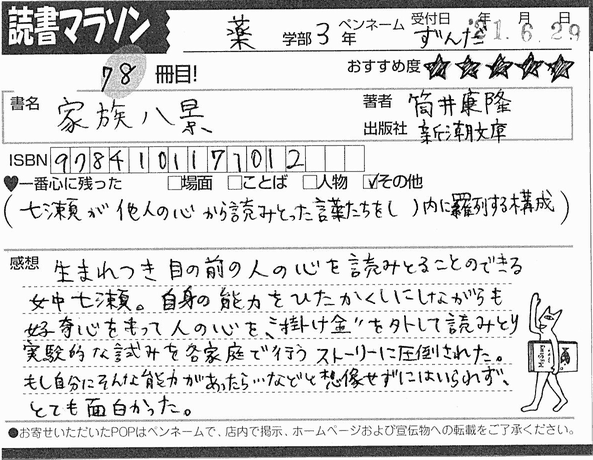 読書マラソン
薬 学部 3 年 ペンネーム ずんだ 受付日 年 月 日 '21.6.29
78 冊目! おすすめ度 ★★★★★
書名 家族八景 著者 筒井康隆
出版社 新潮文庫
ISBN 9784101171012
♥一番心に残った □場面 □ことば □人物 ☑その他
(七瀬が他人の心から読みとった言葉たちを( )内に羅列する構成)
感想 生まれつき目の前の人の心を読みとることのできる
女中七瀬。自身の能力をひたかくしにしながらも
好奇心をもって人の心を、"掛け金"を外して読みとり
実験的な試みを各家庭で行うストーリーに圧倒された。
もし自分にそんな能力があったら…などと想像せずにはいられず、
とても面白かった。
●お寄せいただいたPOPはペンネームで、店内で掲示、ホームページおよび宣伝物への転載をご了承ください。